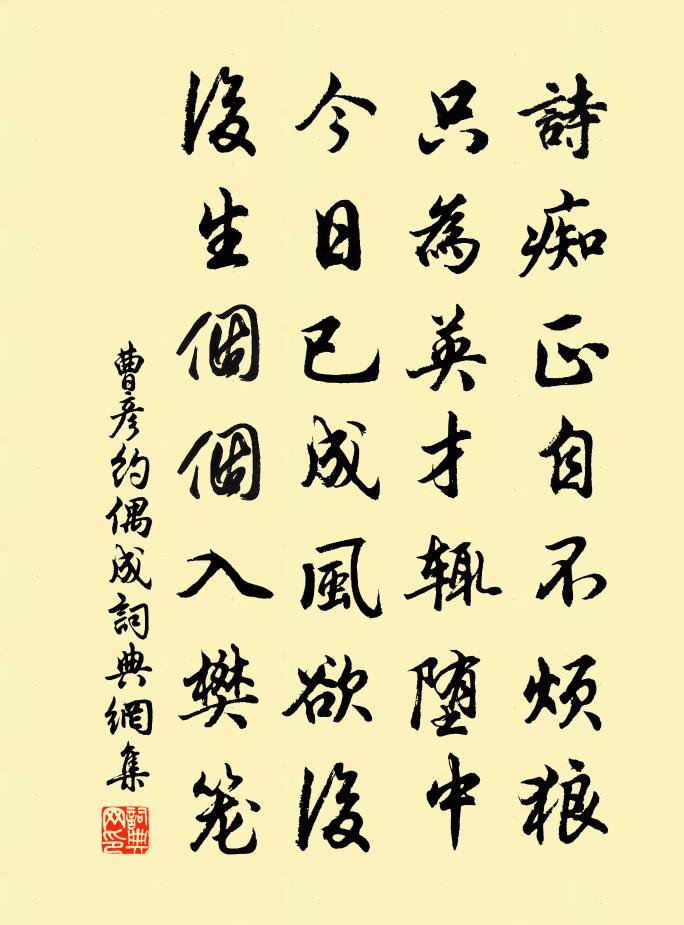 詩痴正自不煩狼
只為英才輒堕中
今日已成風欲後
後生個個入樊笼
曹彦約偶成詞典網集
詞典网印